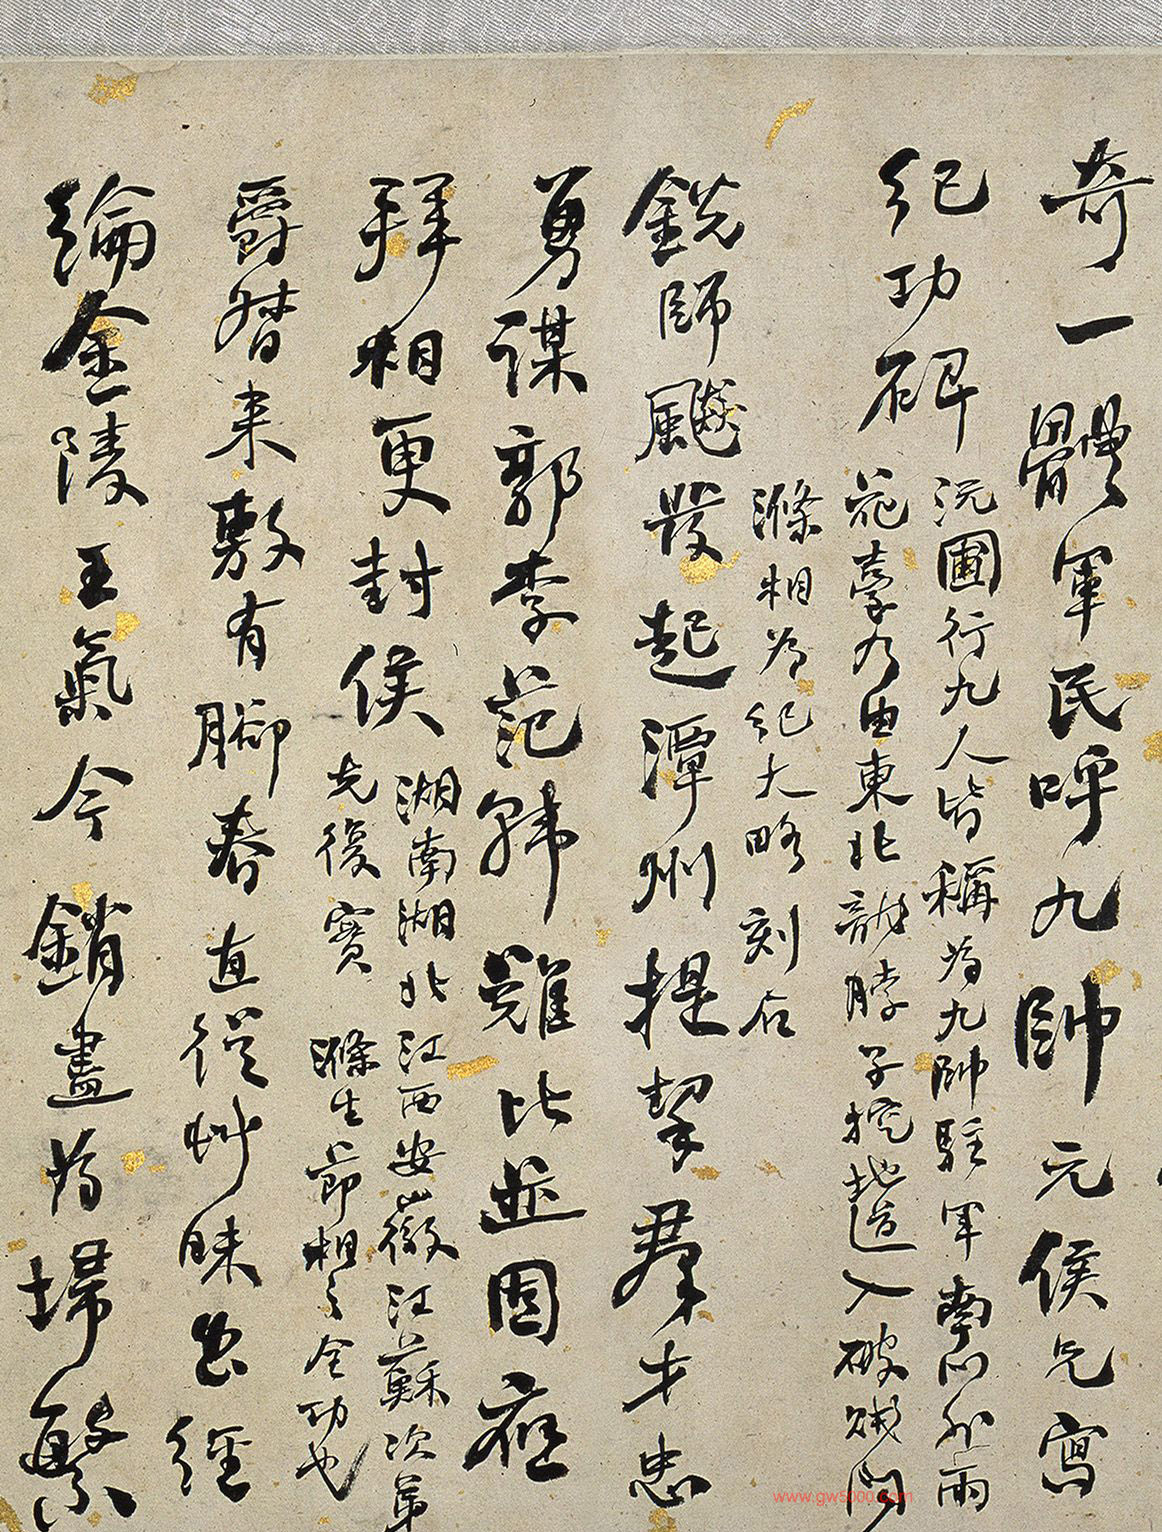 奇一體軍民呼九帥元侯兄寫
紀功碑
沅圃行九人皆稱為九帥駐軍南門外雨
花臺乃由東北龍脖子挖地道入破城關
滌相為紀大略刻石
銳師飈發起潭州提挈羣才忠
勇謀郭李范韓難比並固應
拜相更封侯
湖南湖北江西安徽江蘇次第
克復實滌生節相之全功也
爵階来敷有腳春直從草昧出經
綸金陵王氣今銷盡為埽繁
www.gw5000.com